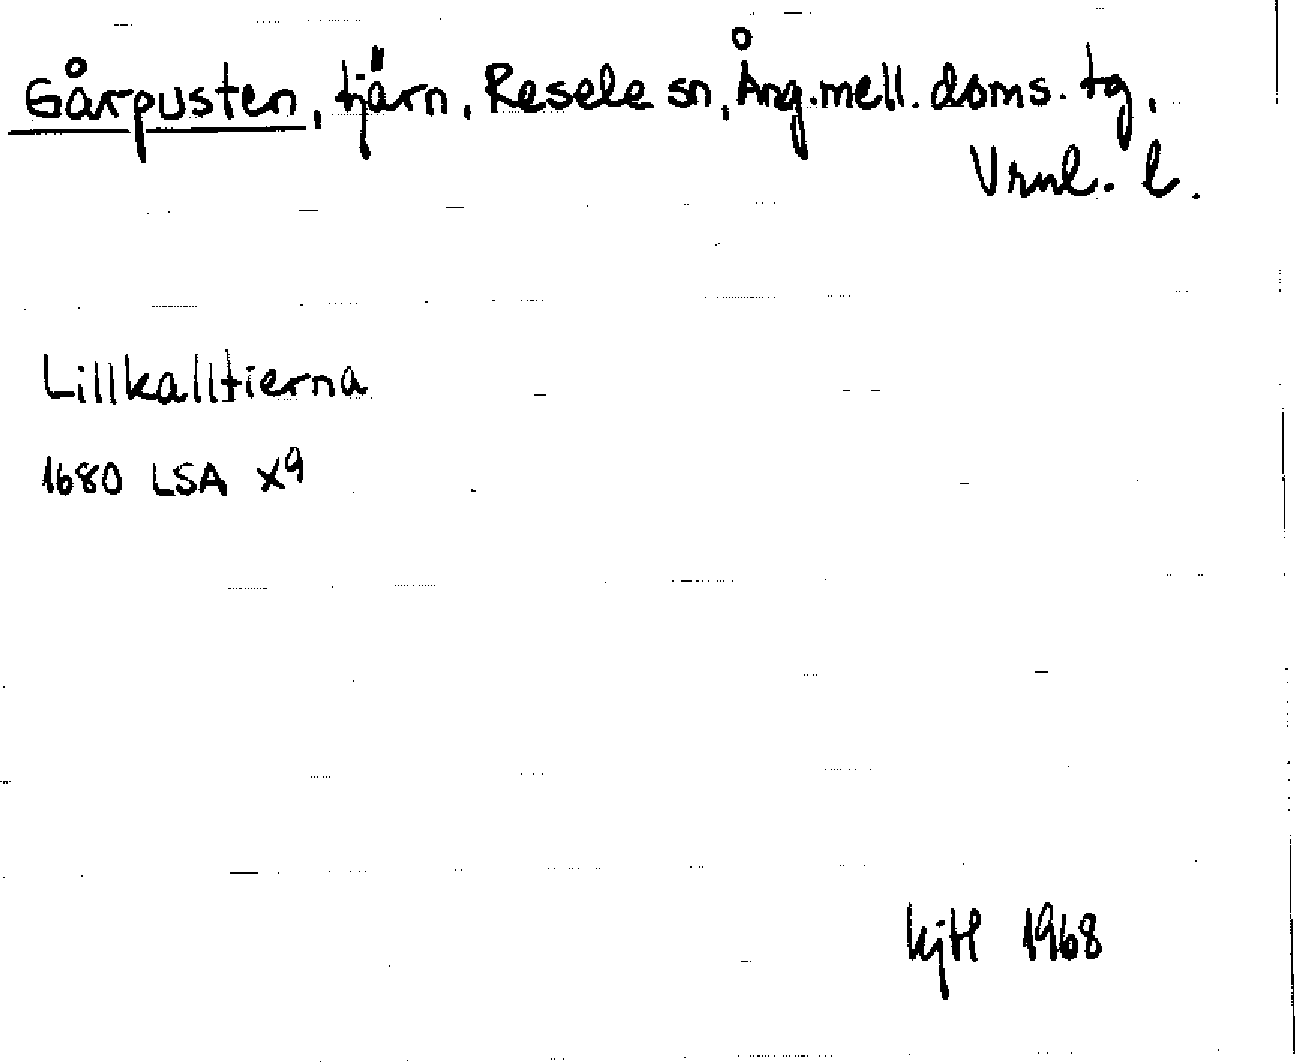 Gårpusten, tjärn, Resele sn, Ång.mell. doms. tg.
Vrnl. l.
Lillkalltierna
1680 LSA X9
kjtl 1968